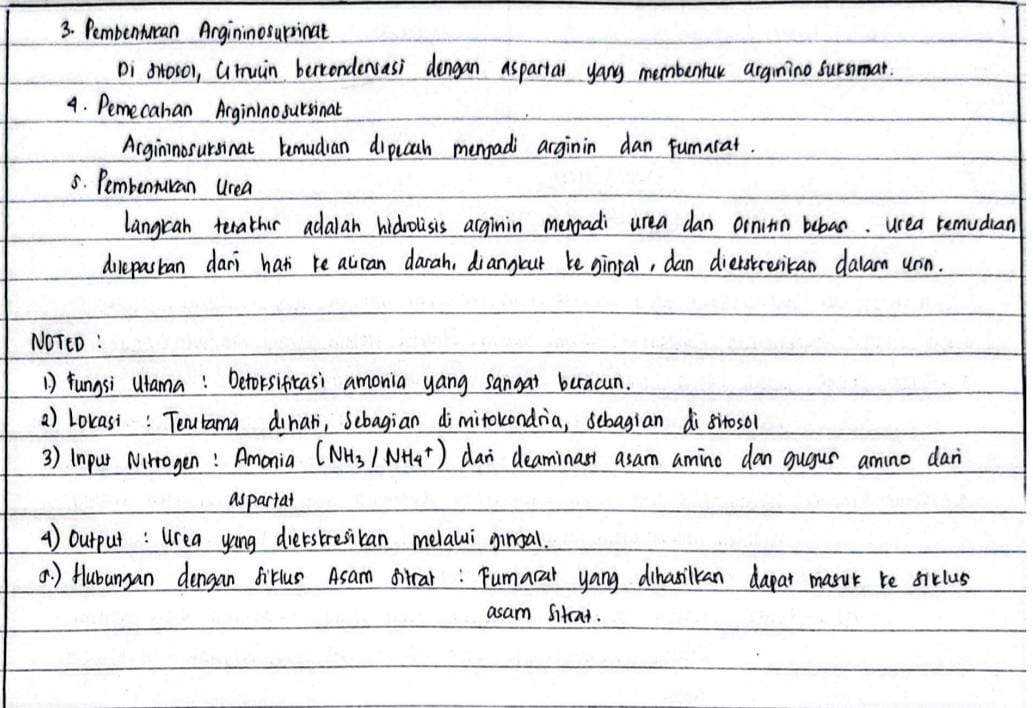 3. Pembentukan Argininosuksinat
Di sitosol, Citrulin berkondensasi dengan aspartat yang membentuk arginino suksinat.
4. Pemecahan Argininosuksinat
Argininosuksinat kemudian dipecah menjadi arginin dan fumarat.
5. Pembentukan Urea
Langkah terakhir adalah hidrolisis arginin menjadi urea dan Ornitin bebas. Urea kemudian
dilepaskan dari hati ke aliran darah, diangkut ke ginjal, dan diekskresikan dalam urin.
NOTED :
1.) Fungsi Utama : Detoksifikasi amonia yang sangat beracun.
2) Lokasi : Terutama dihati, Sebagian di mitokondria, sebagian di sitosol
3) Input Nitrogen : Amonia (NH3 / NH4+) dari deaminasi asam amino dan gugus amino dari
aspartat
4) Output : Urea yang diekskresikan melalui ginjal.
5.) Hubungan dengan Siklus Asam Sitrat : Fumarat yang dihasilkan dapat masuk ke siklus
asam Sitrat.